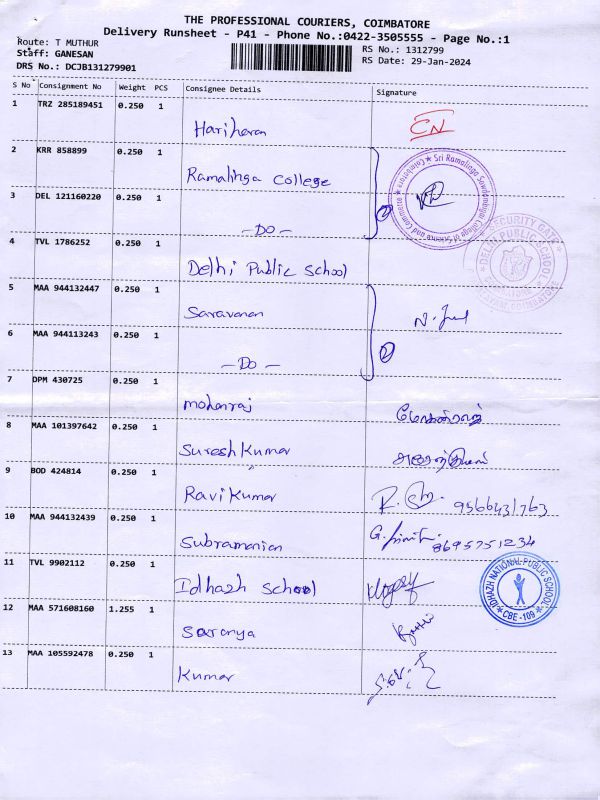 THE PROFESSIONAL COURIERS, COIMBATORE
Delivery Runsheet - P41 - Phone No.:0422-3505555 - Page No.:1
Route: T MUTHUR
Staff: GANESAN
DRS No.: DCJB131279901
RS No.: 1312799
RS Date: 29-Jan-2024
S No Consignment No Weight PCS Consignee Details Signature
1 TRZ 285189451 0.250 1 Hariharan CN
2 KRR 858899 0.250 1 Ramalinga College
3 DEL 121160220 0.250 1 - DO -
4 TVL 1786252 0.250 1 Delhi Public School
5 MAA 944132447 0.250 1 Saravanan
6 MAA 944113243 0.250 1 - DO -
7 DPM 430725 0.250 1 mohanraj
8 MAA 101397642 0.250 1 Suresh Kumar
9 BOD 424814 0.250 1 Ravi Kumar 9566431763
10 MAA 944132439 0.250 1 Subramanian 8695751234
11 TVL 9902112 0.250 1 Idhazh School
12 MAA 571608160 1.255 1 Saranya
13 MAA 105592478 0.250 1 Kumar
SECURITY GATE
DELHI PUBLIC SCHOOL
IDHAZH NATIONAL PUBLIC SCHOOL
CBE-109